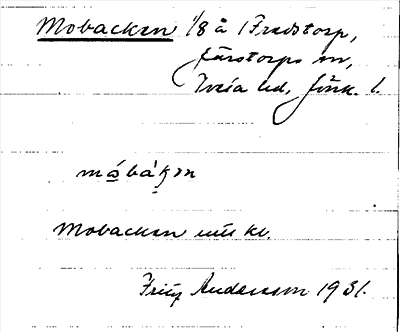 Mobacken 1/8 å 1 Fredstorp,
Järstorps sn,
Tveta hd, Jönk. l.
måbàkən
Mobacken enl. kl.
Fritz Andersson 1931.